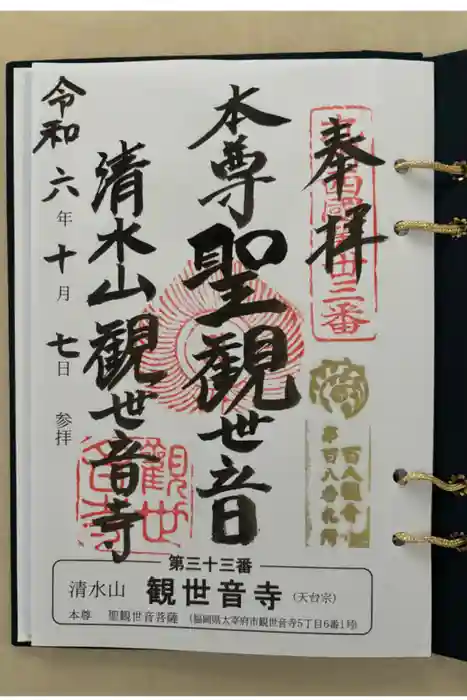 奉拝
本尊 聖観世音
清水山 観世音寺
令和六年十月七日 参拝
九州西国第卅三番
観世音寺
第三十三番
清水山 観世音寺 (天台宗)
本尊 聖観世音菩薩 (福岡県太宰府市観世音寺5丁目6番1号)